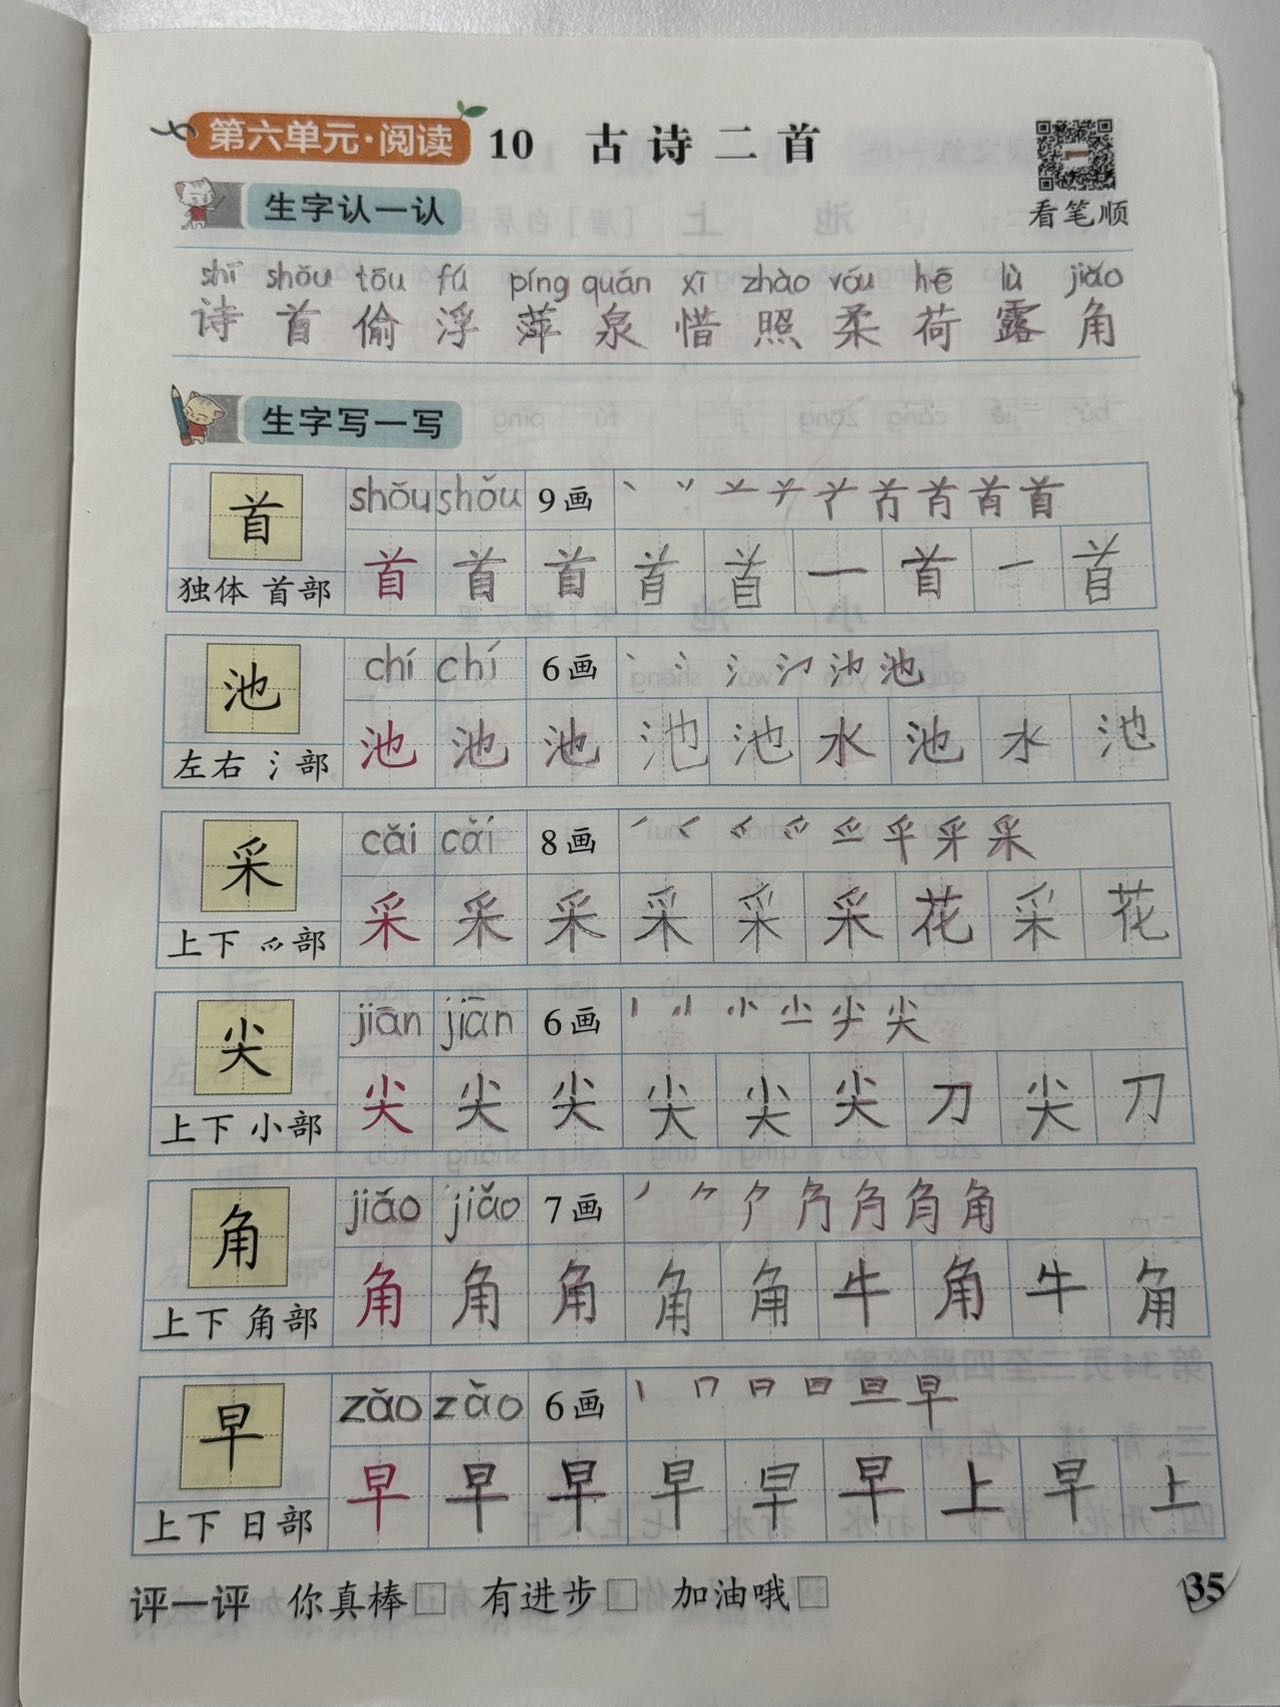 第六单元·阅读 10 古诗二首
看笔顺
生字认一认
shī shǒu tōu fú píng quán xī zhào róu hé lù jiǎo
诗 首 偷 浮 萍 泉 惜 照 柔 荷 露 角
生字写一写
首 shǒu shǒu 9画
独体 首部 首 首 首 首 首 一 首 一 首
池 chí chí 6画
左右 氵部 池 池 池 池 池 水 池 水 池
采 cǎi cǎi 8画
上下 爫部 采 采 采 采 采 采 花 采 花
尖 jiān jiān 6画
上下 小部 尖 尖 尖 尖 尖 尖 刀 尖 刀
角 jiǎo jiǎo 7画
上下 角部 角 角 角 角 角 牛 角 牛 角
早 zǎo zǎo 6画
上下 日部 早 早 早 早 早 早 上 早 上
评一评 你真棒□ 有进步□ 加油哦□
35